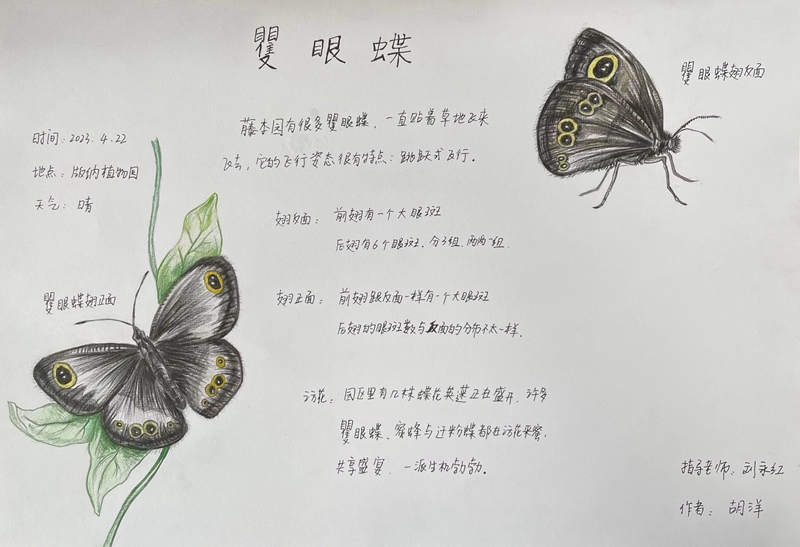 瞿眼蝶
瞿眼蝶翅反面
时间：2023.4.22
地点：版纳植物园
天气：晴
藤本园有很多瞿眼蝶，一直贴着草地飞来
飞去，它的飞行姿态很有特点：跳跃式飞行。
翅反面：前翅有一个大眼斑
后翅有6个眼斑，分3组，两两一组。
瞿眼蝶翅正面
翅正面：前翅跟反面一样有一个大眼斑
后翅的眼斑数与反面的分布不太一样。
访花：园区里有几株蝶花荚蒾正在盛开，许多
瞿眼蝶、蜜蜂与迁粉蝶都在访花采蜜，
共享盛宴，一派生机勃勃。
指导老师：刘永红
作者：胡洋